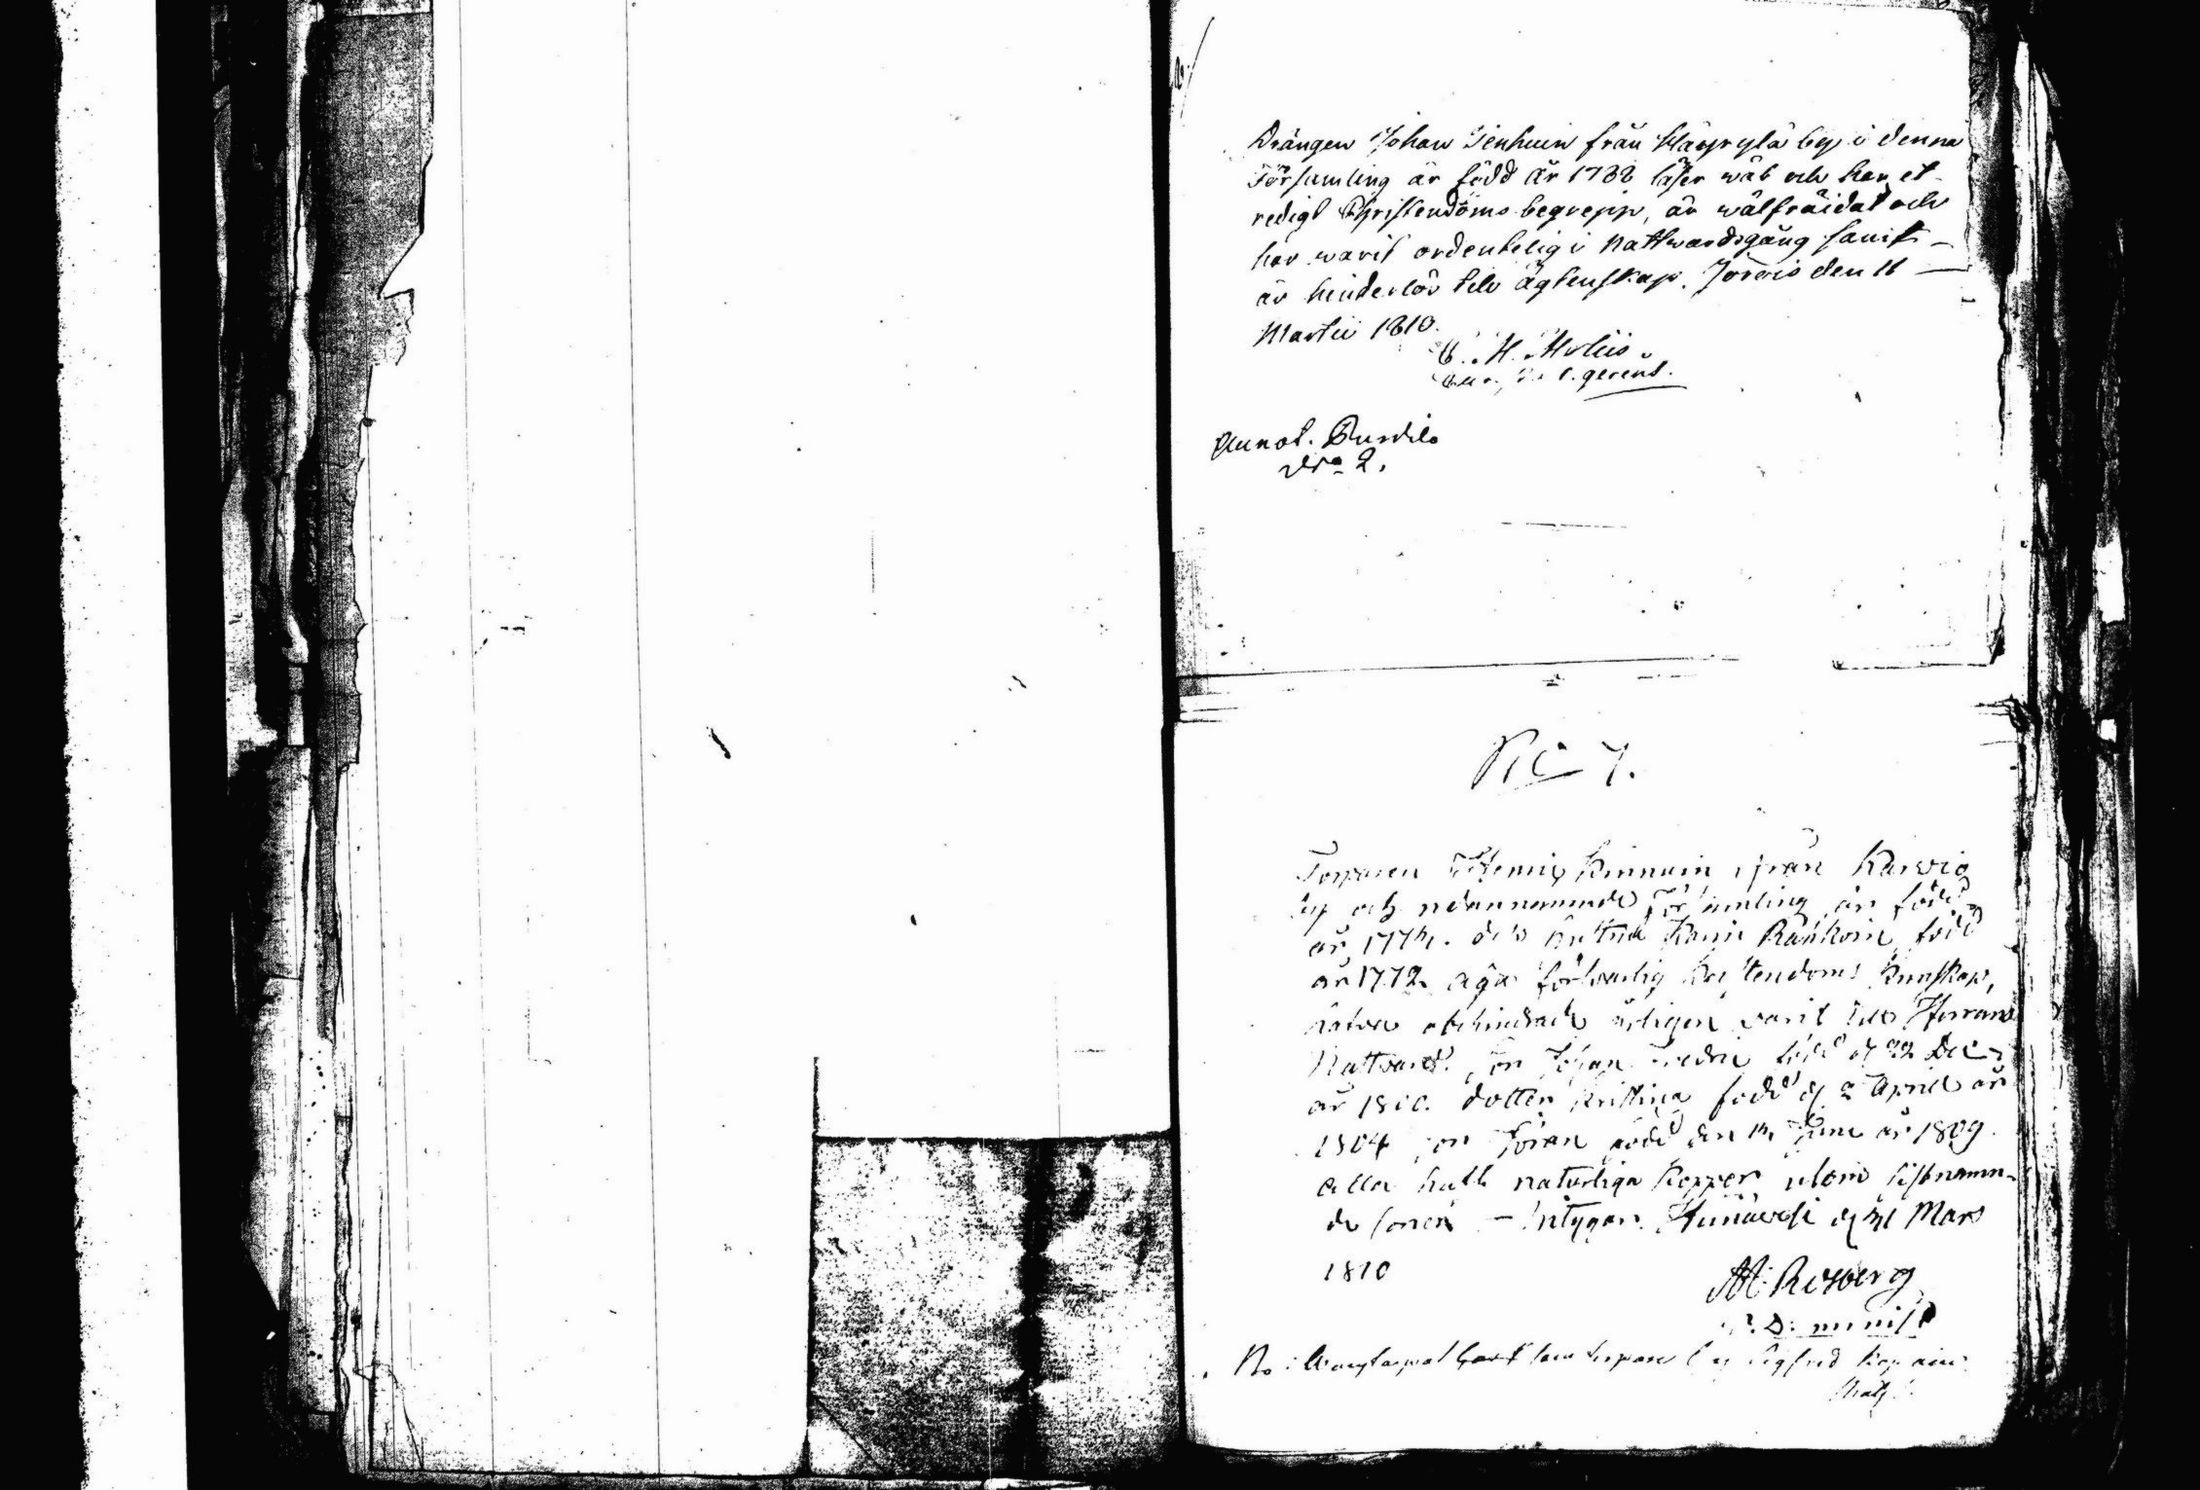 Drängen Johan Jenhuin från Häyrylä by i denna
Församling är född år 1782 läser wäl och har et
redigt Christendoms begrepp, är wälfräidat och
har warit ordentelig i Nattwardsgång samt
är hinderlös till ägtenskap. Jorois den 11
Martii 1810.
C. H. Molis
v. gerens.
Annot. Purdilo
No 2.
No 7.
Torparen Heming Kinnuin ifrån Karvio
by och nedannämnde Församling är född
år 1774. dess hustru Karin Räikoin född
år 1772 äga förswarlig Kristendoms Kunskap,
hafva obehindrade årligen varit till Herrans
Nattvard. Son Johan Fredric född d 22 Dec
år 1800. dotter Kristina född d 2 April år
1804 son Jöran född den 14 Junii år 1809.
alla haft naturliga koppor utom sistnämn-
de sonen – Intygar. Heinävesi d 31 Mars
1810
M: Rosberg
V. D. minist
No: som torpare Sigfrid